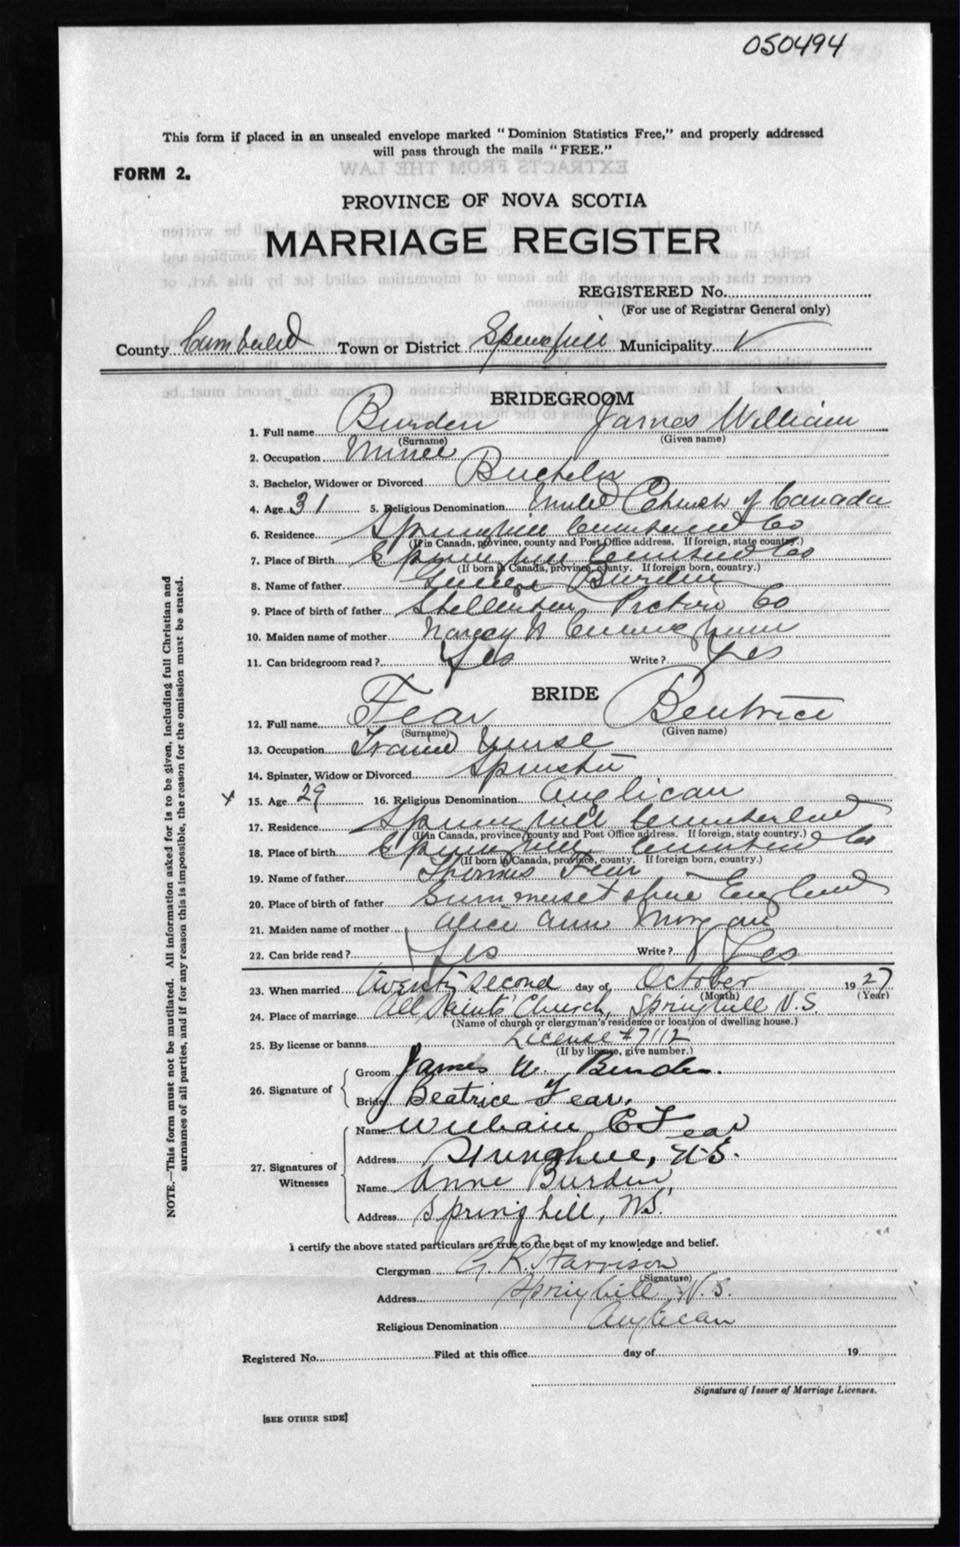 050494
This form if placed in an unsealed envelope marked "Dominion Statistics Free," and properly addressed
will pass through the mails "FREE."
FORM 2.
PROVINCE OF NOVA SCOTIA
MARRIAGE REGISTER
REGISTERED No.
(For use of Registrar General only)
County Cumberland Town or District Springhill Municipality
BRIDEGROOM
1. Full name Burden James William
(Surname) (Given name)
2. Occupation Miner
3. Bachelor, Widower or Divorced Bachelor
4. Age 31 5. Religious Denomination United Church of Canada
6. Residence Springhill Cumberland Co
(If in Canada, province, county and Post Office address. If foreign, state country.)
7. Place of Birth Springhill Cumberland Co
(If born in Canada, province, county. If foreign born, country.)
8. Name of father Burden
9. Place of birth of father Stellarton Pictou Co
10. Maiden name of mother Nancy
11. Can bridegroom read? Yes Write? Yes
BRIDE
12. Full name Fear Beatrice
(Surname) (Given name)
13. Occupation Trained Nurse
14. Spinster, Widow or Divorced Spinster
x 15. Age 29 16. Religious Denomination Anglican
17. Residence Springhill Cumberland
(If in Canada, province, county and Post Office address. If foreign, state country.)
18. Place of birth Springhill Cumberland Co
(If born in Canada, province, county. If foreign born, country.)
19. Name of father Thomas Fear
20. Place of birth of father England
21. Maiden name of mother Alice Ann Morgan
22. Can bride read? Yes Write? Yes
23. When married Twenty second day of October 1927
(Month) (Year)
24. Place of marriage All Saints' Church, Springhill N.S.
(Name of church or clergyman's residence or location of dwelling house.)
25. By license or banns License # 7112
(If by license, give number.)
26. Signature of
Groom James W. Burden.
Bride Beatrice Fear.
27. Signatures of Witnesses
Name William C Fear
Address Springhill, N.S.
Name Anne Burden
Address Springhill, N.S.
I certify the above stated particulars are true to the best of my knowledge and belief.
Clergyman G. R. Harrison
(Signature)
Address Springhill N.S.
Religious Denomination Anglican
Registered No. Filed at this office day of 19
Signature of Issuer of Marriage Licenses.
[SEE OTHER SIDE]
NOTE.—This form must not be mutilated. All information asked for is to be given, including full Christian and
surnames of all parties, and if for any reason this is impossible, the reason for the omission must be stated.